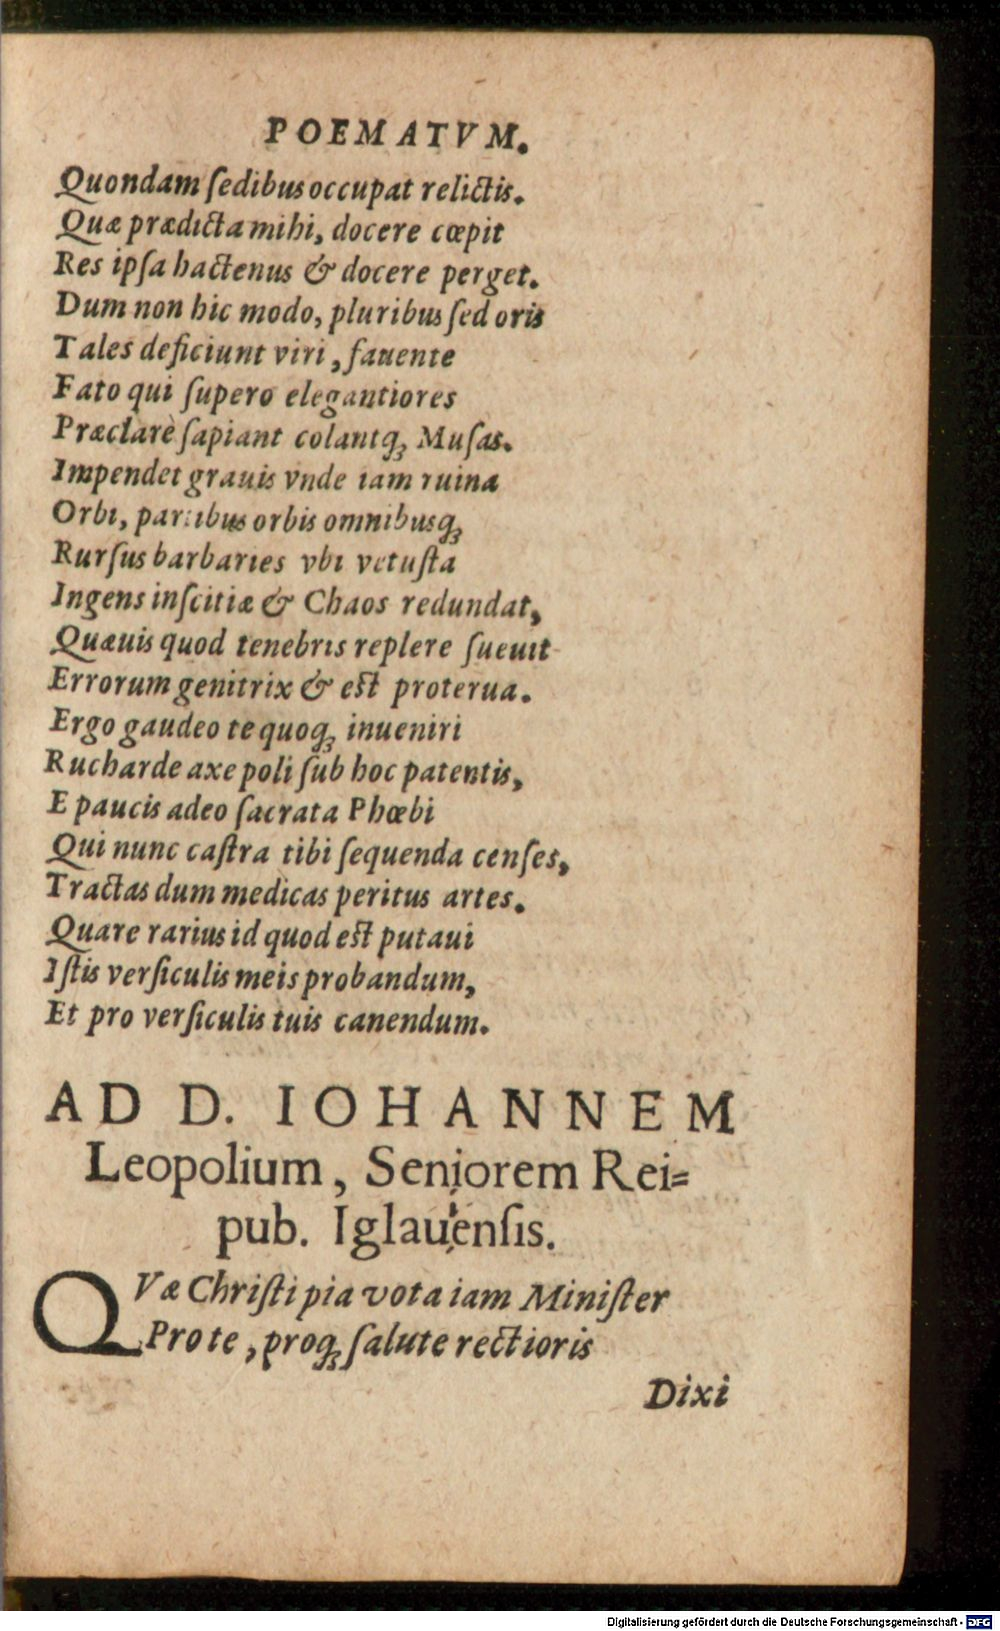 POEMATVM.
Quondam ſedibus occupat relictis.
Quæ prædicta mihi, docere cœpit
Res ipſa hactenus & docere perget.
Dum non hic modo, pluribus ſed oris
Tales deficiunt viri, fauente
Fato qui ſupero elegantiores
Præclarè ſapiant colantq́ꝫ Muſas.
Impendet grauis vnde iam ruina
Orbi, partibus orbis omnibusq́ꝫ
Rurſus barbaries vbi vetuſta
Ingens inſcitiæ & Chaos redundat,
Quæuis quod tenebris replere ſueuit
Errorum genitrix & est proterua.
Ergo gaudeo te quoqꝫ inueniri
Rucharde axe poli ſub hoc patentis,
E paucis adeo ſacrata Phœbi
Qui nunc caſtra tibi ſequenda cenſes,
Tractas dum medicas peritus artes.
Quare rarius id quod est putaui
Iſtis verſiculis meis probandum,
Et pro verſiculis tuis canendum.
AD D. IOHANNEM
Leopolium, Seniorem Rei=
pub. Iglauienſis.
QVæ Chriſti pia vota iam Miniſter
Pro te, proqꝫ ſalute rectioris
Dixi
Digitalisierung gefördert durch die Deutsche Forschungsgemeinschaft - DFG